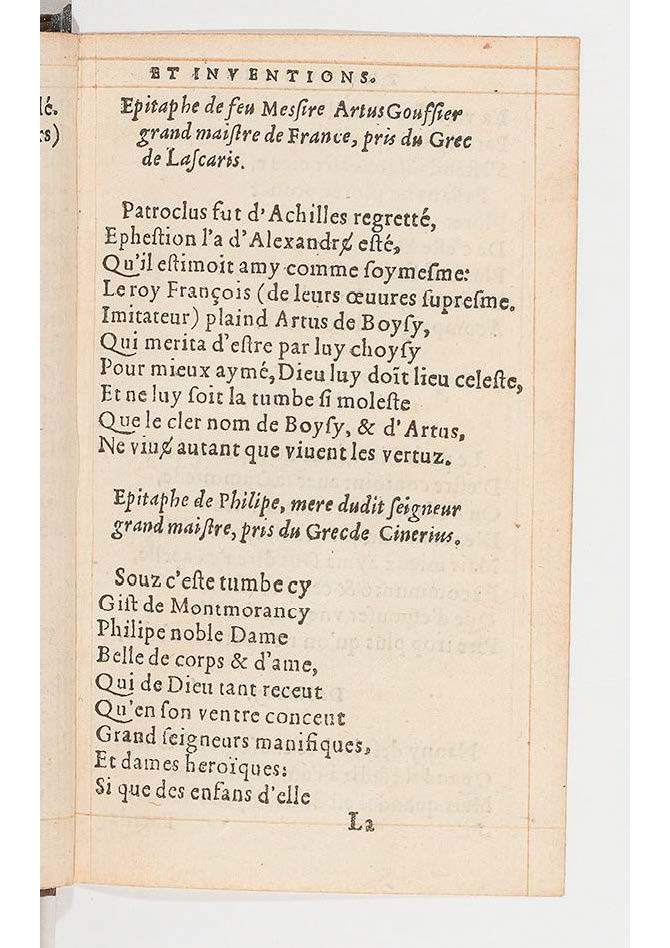 lé.
rs)
ET INVENTIONS.
Epitaphe de feu Meſsire Artus Gouffier
grand maiſtre de France, pris du Grec
de Laſcaris.
Patroclus fut d'Achilles regretté,
Epheſtion l'a d'Alexandrɇ eſté,
Qu'il eſtimoit amy comme ſoymeſme:
Le roy François (de leurs œuures ſupreſme.
Imitateur) plaind Artus de Boyſy,
Qui merita d'eſtre par luy choyſy
Pour mieux aymé, Dieu luy doït lieu celeſte,
Et ne luy ſoit la tumbe ſi moleſte
Que le cler nom de Boyſy, & d'Artus,
Ne viuɇ autant que viuent les vertuz.
Epitaphe de Philipe, mere dudit ſeigneur
grand maiſtre, pris du Grecde Cinerius.
Souz c'eſte tumbe cy
Giſt de Montmorancy
Philipe noble Dame
Belle de corps & d'ame,
Qui de Dieu tant receut
Qu'en ſon ventre conceut
Grand ſeigneurs manifiques,
Et dames heroïques:
Si que des enfans d'elle
La